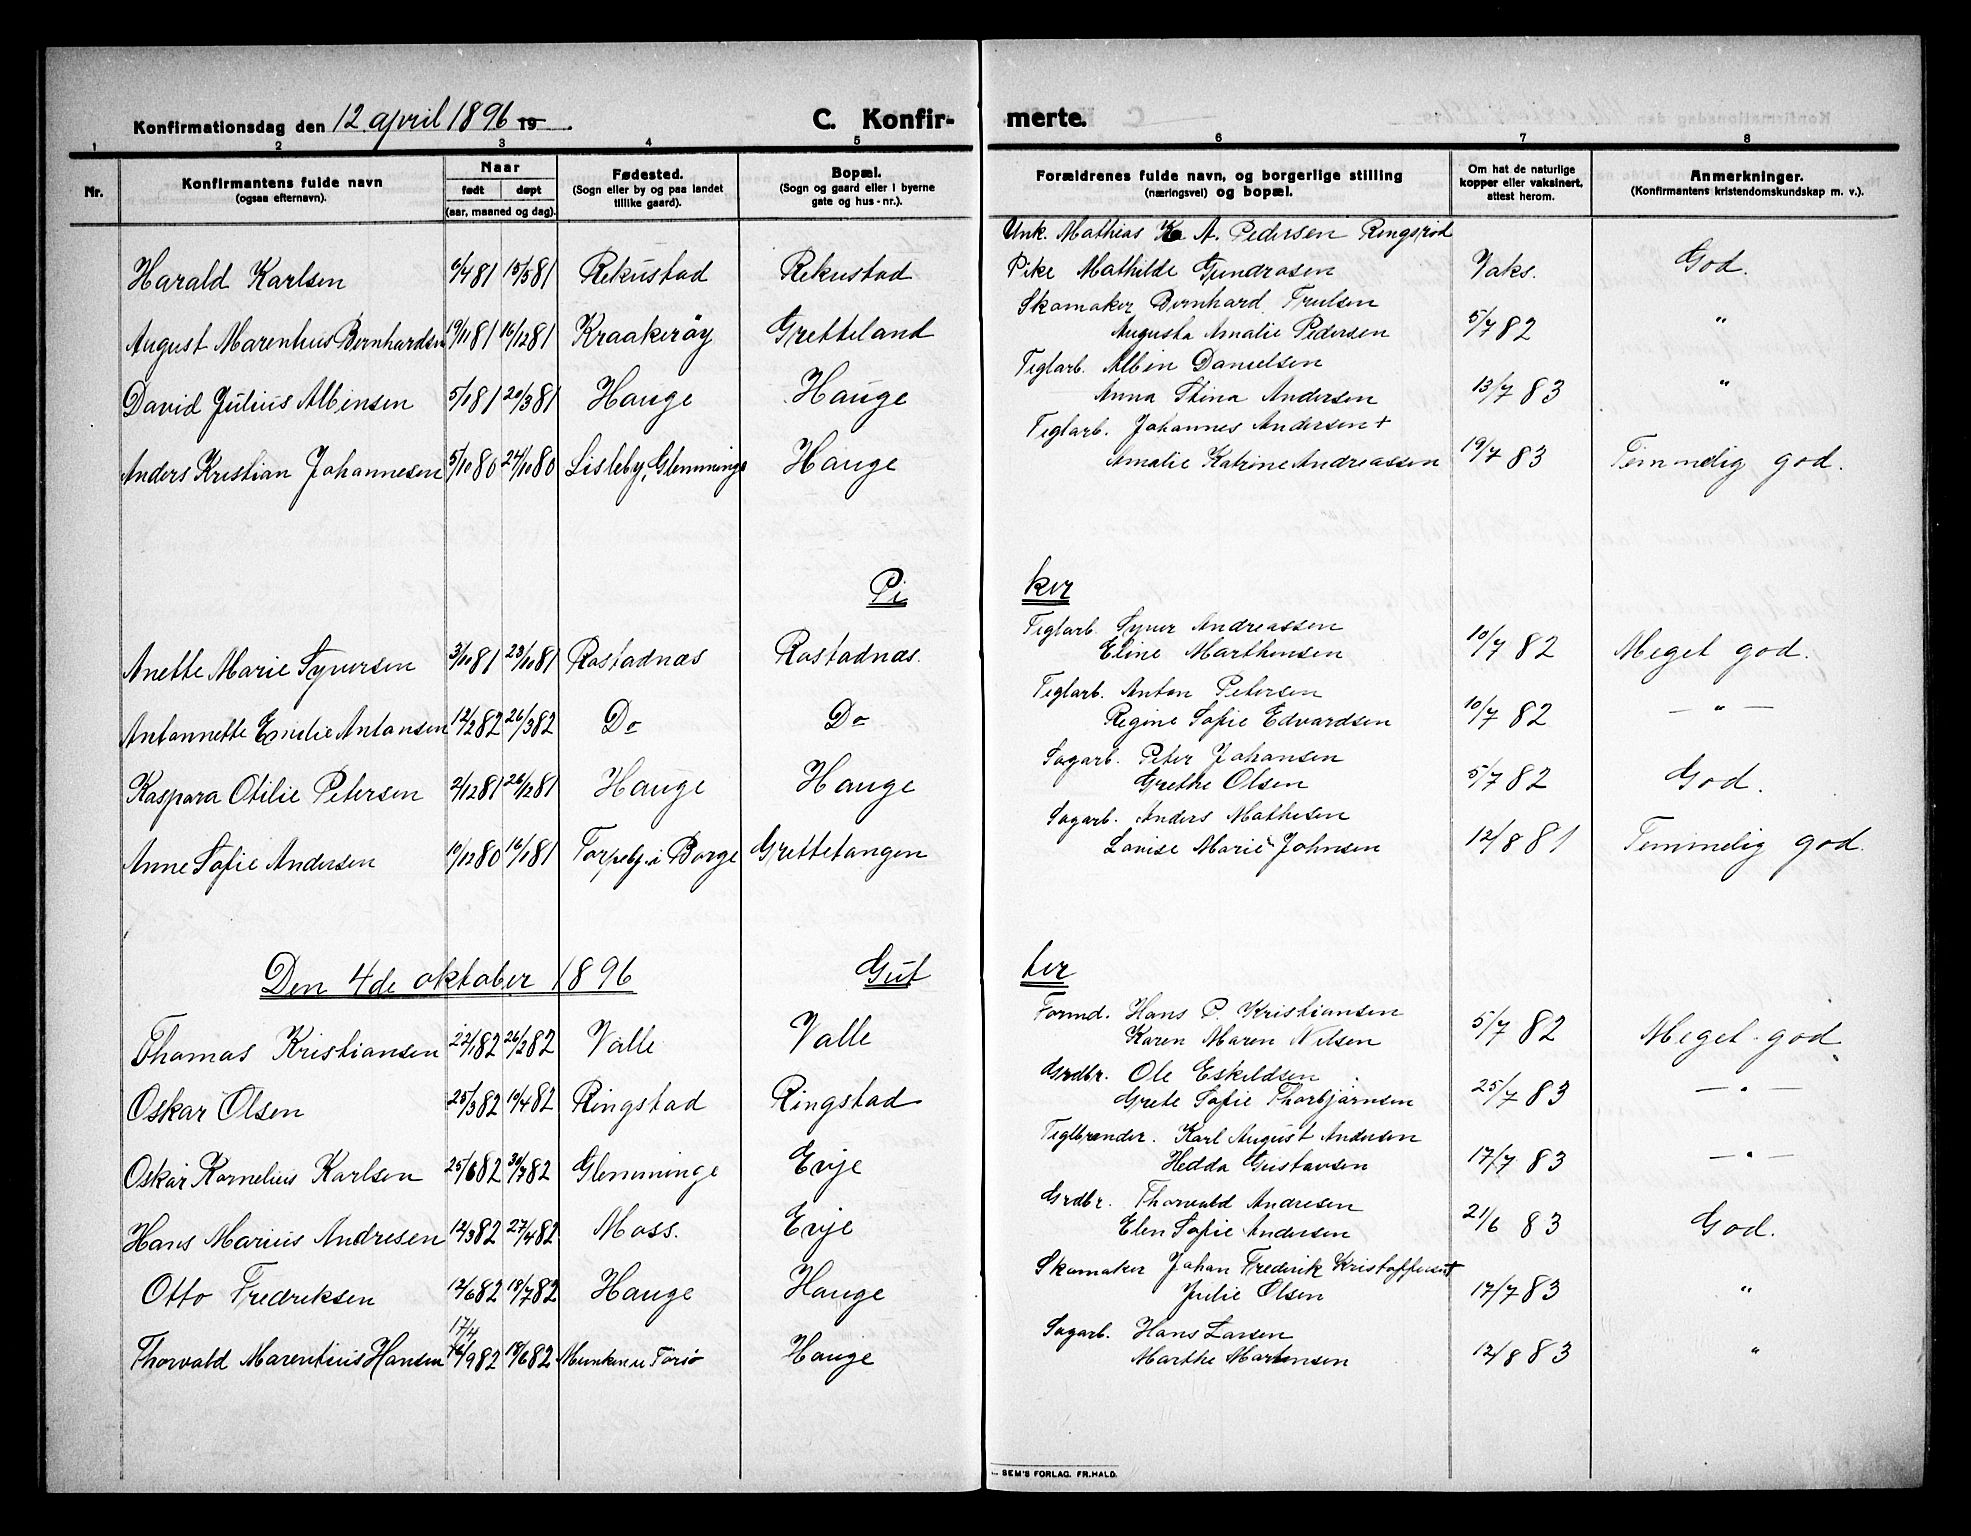 Konfirmationsdag den 12 april 1896 19 . C. Konfir- merte.
1 2 3 4 5 6 7 8
Nr. Konfirmantens fulde navn (ogsaa efternavn). Naar født døpt (aar, maaned og dag). Fødested. (Sogn eller by og paa landet tillike gaard). Bopæl. (Sogn og gaard eller i byerne gate og hus-nr.). Forældrenes fulde navn, og borgerlige stilling (næringsvei) og bopæl. Om hat de naturlige kopper eller vaksinert, attest herom. Anmerkninger. (Konfirmantens kristendomskundskap m. v.).
Unk. Mathias A. Pedersen Ringsrød
Harald Karlsen 6/4 81 15/5 81 Rekustad Rekustad Pike Mathilde Gundrosen Vaks. God.
Skomaker Bernhard Trulsen
August Marenhus Bernhardsen 19/11 81 16/12 81 Kraakerøy Gretteland Augusta Amalie Pedersen 5/7 82 "
Teglarb. Albin Danielsen
David Julius Albinsen 5/1 81 20/3 81 Hauge Hauge Anna Stina Andersen 13/7 83 "
Teglarb. Johannes Andersen +
Anders Kristian Johannesen 5/10 80 24/10 80 Lisleby, Glemminge Hauge Amalie Katrine Andreassen 19/7 83 Temmelig god.
Pi ker
Teglarb. Syver Andreassen
Anette Marie Syversen 3/10 81 23/10 81 Rostadnæs Rostadnæs. Eline Marthinsen 10/7 82 Meget god.
Teglarb. Anton Petersen
Antonnette Emelie Antonsen 12/2 82 26/3 82 Do Do Regine Sofie Edvardsen 10/7 82 — " —
Sagarb. Peter Johansen
Kaspara Otilie Petersen 2/12 81 26/12 81 Hauge Hauge Grethe Olsen 5/7 82 God.
Sagarb. Anders Mathisen
Anne Sofie Andersen 10/12 80 16/1 81 Torpebj. i Borge Grettetangen Lovise Marie Johnsen 12/8 81 Temmelig god.
Den 4de oktober 1896 Gut ter
Formd. Hans P. Kristiansen
Thomas Kristiansen 22/1 82 26/2 82 Valle Valle Karen Maren Nilsen 5/7 82 Meget god
Grdbr. Ole Eskildsen
Oskar Olsen 25/3 82 10/4 82 Ringstad Ringstad Grete Sofie Thorbjørnsen 25/7 83 — " —
Teglbrænder. Karl August Andersen
Oskar Kornelius Karlsen 25/6 82 30/7 82 Glemminge Evje Hedda Gustavsen 17/7 83 — " —
Grdbr. Thorvald Andresen
Hans Marius Andresen 12/3 82 27/4 82 Moss. Evje Elen Sofie Andersen 21/6 83 God.
Skomaker Johan Frederik Kristoffersen +
Otto Fredriksen 12/6 82 18/7 82 Hauge Hauge Julie Olsen 17/7 83 "
17/4 Sagarb. Hans Larsen
Thorvald Marentius Hansen 9 82 18/6 82 Torsø Hauge Marthe Martinsen 12/8 83 "
SEM'S FORLAG. FR. HALD.